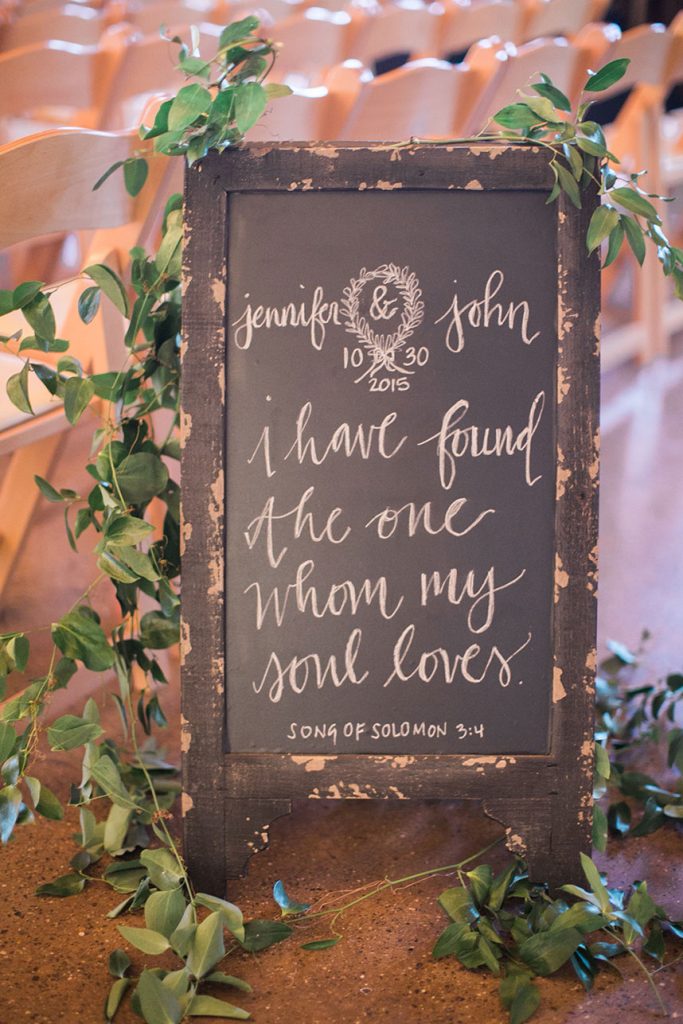 jennifer & john
10 30
2015
i have found
the one
whom my
soul loves.
SONG OF SOLOMON 3:4